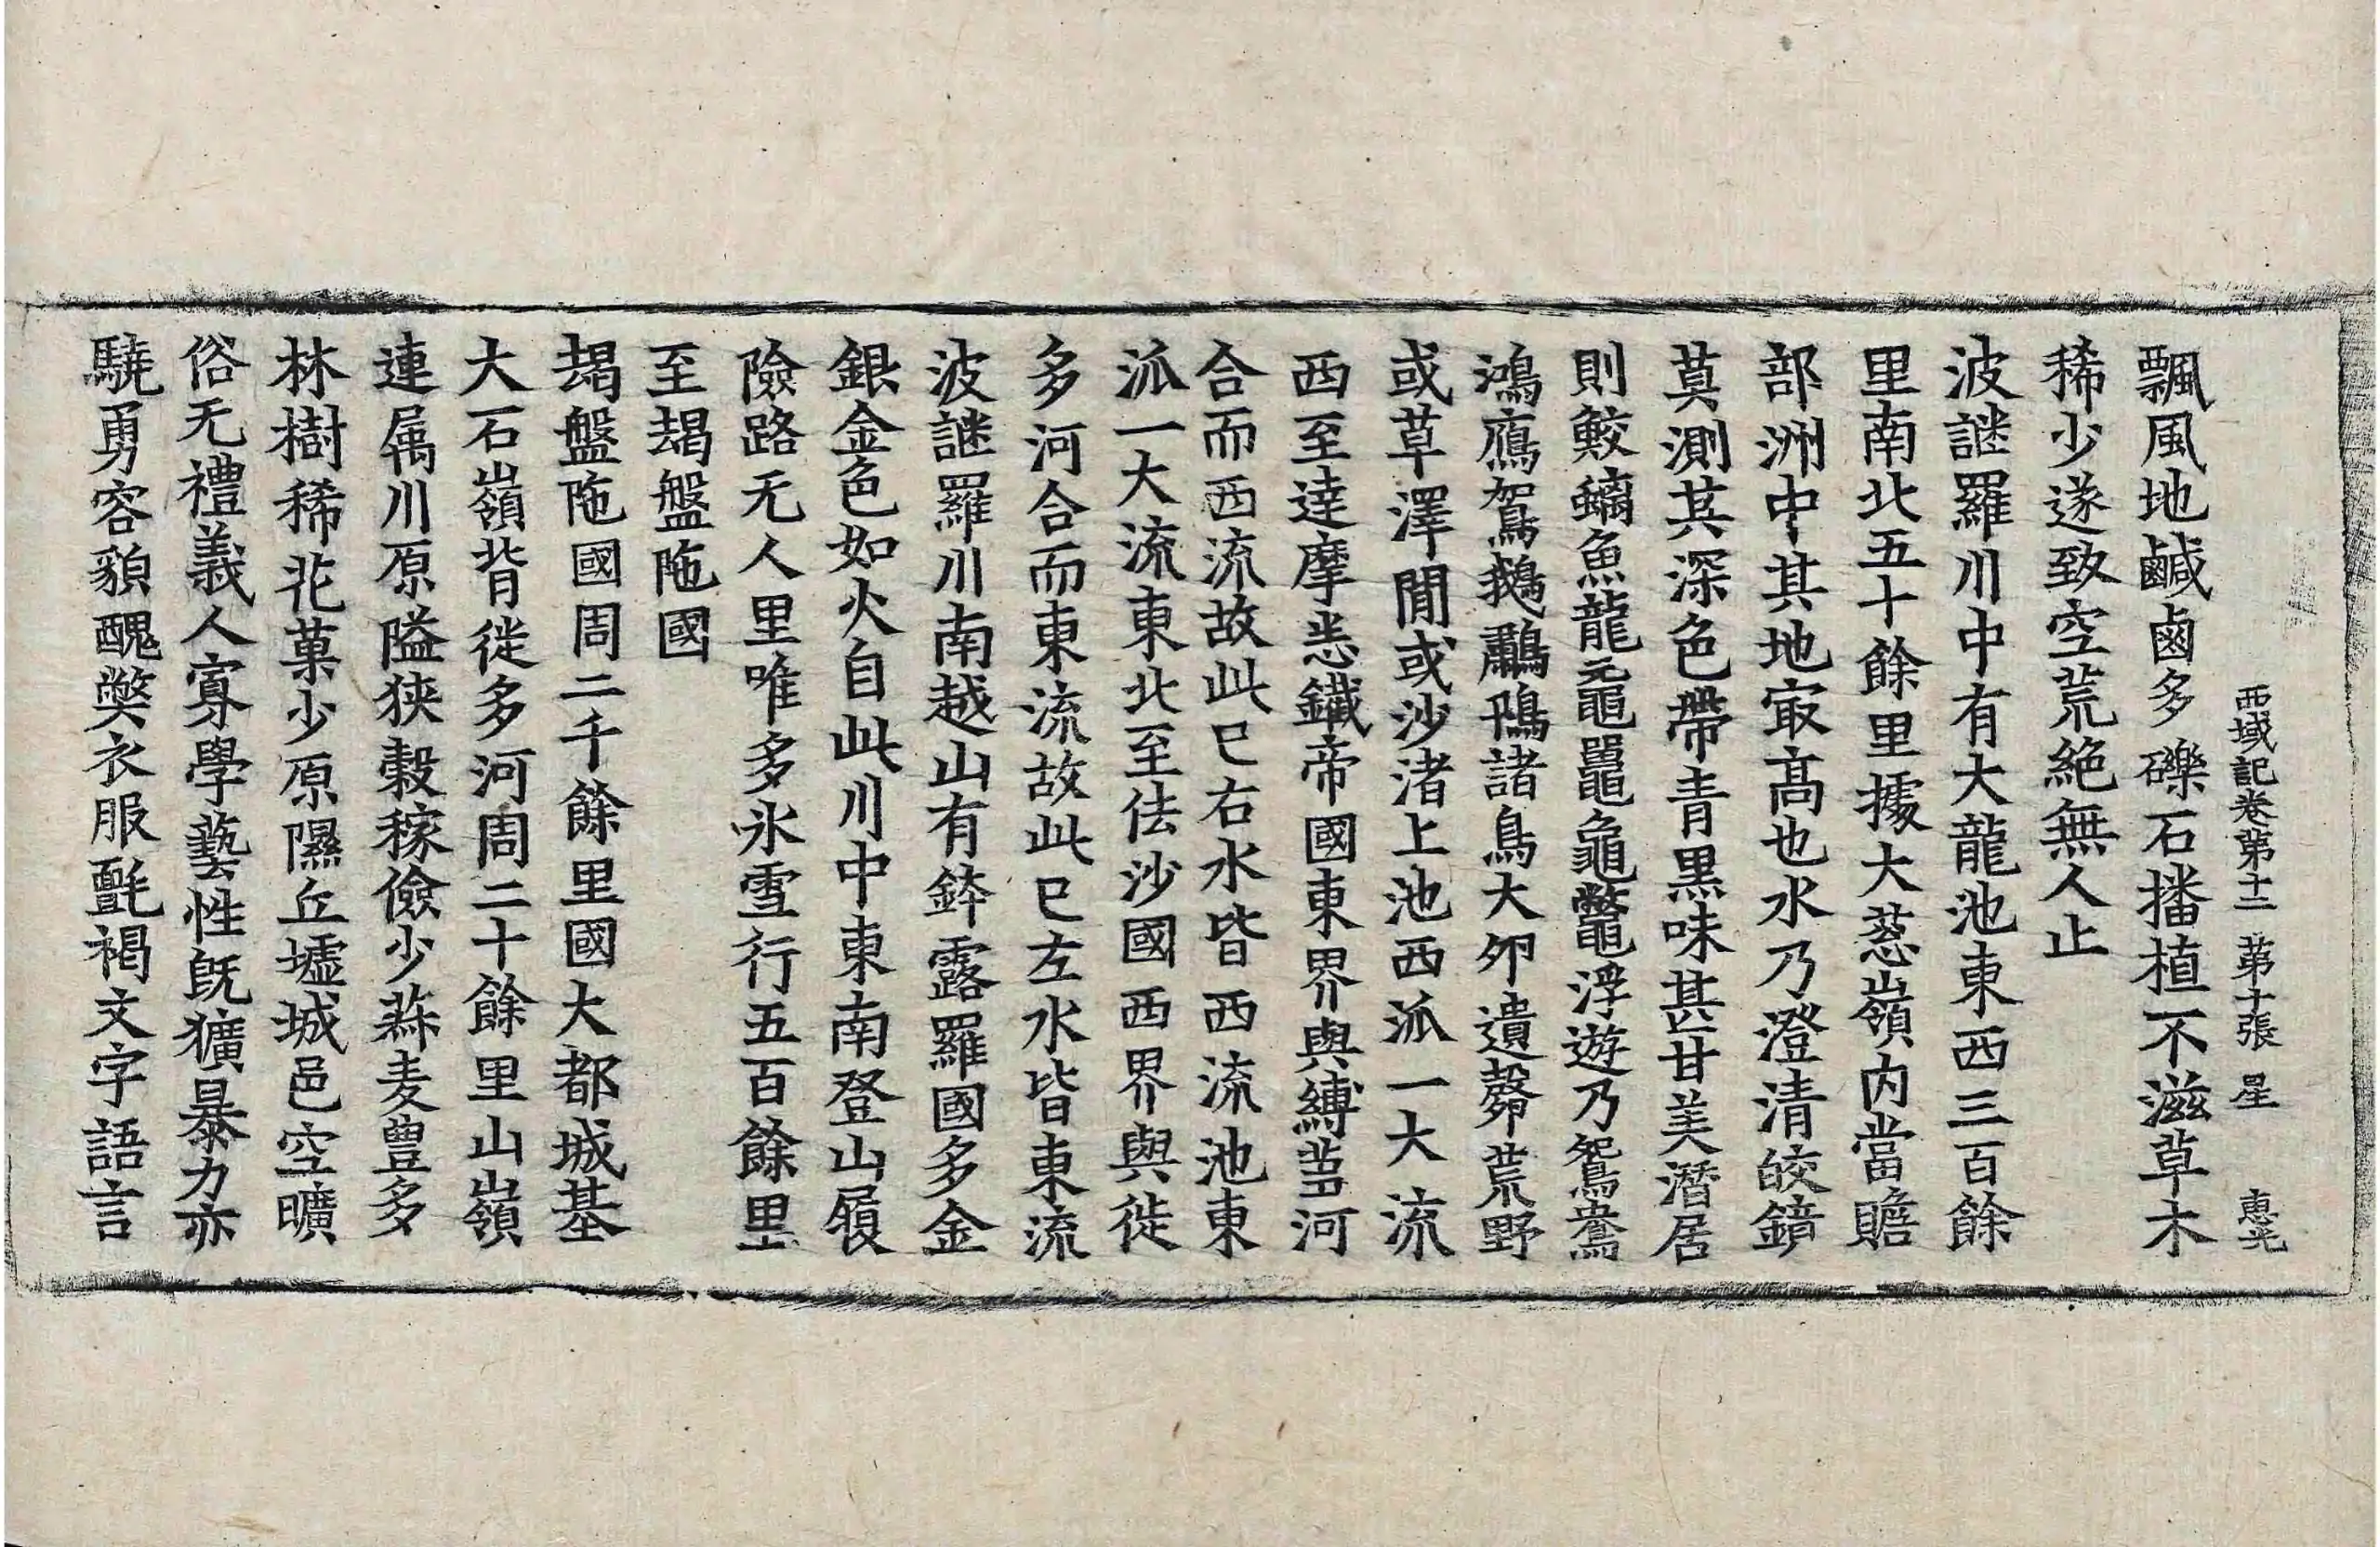 西域記卷第十二 第十張 星 惠光
飄風地鹹鹵多礫石播植不滋草木
稀少遂致空荒絕無人止
波謎羅川中有大龍池東西三百餘
里南北五十餘里據大葱嶺內當贍
部洲中其地冣高也水乃澄清皎鏡
莫測其深色帶青黑味甚甘美潛居
則鮫螭魚龍黿鼉龜鼈浮遊乃鴛鴦
鴻鴈鴐鵝鷫鳵諸鳥大卵遺㲉荒野
或草澤閒或沙渚上池西派一大流
西至達摩悉鐵帝國東界與縛芻河
合而西流故此已右水皆西流池東
派一大流東北至佉沙國西界與徙
多河合而東流故此已左水皆東流
波謎羅川南越山有鉢露羅國多金
銀金色如火自此川中東南登山履
險路无人里唯多氷雪行五百餘里
至朅盤陁國
朅盤陁國周二千餘里國大都城基
大石嶺背徙多河周二十餘里山嶺
連属川原隘狹穀稼儉少菽麦豊多
林樹稀花菓少原隰丘墟城邑空曠
俗无禮義人寡學藝性旣獷暴力亦
驍勇容貌醜弊衣服氈褐文字語言